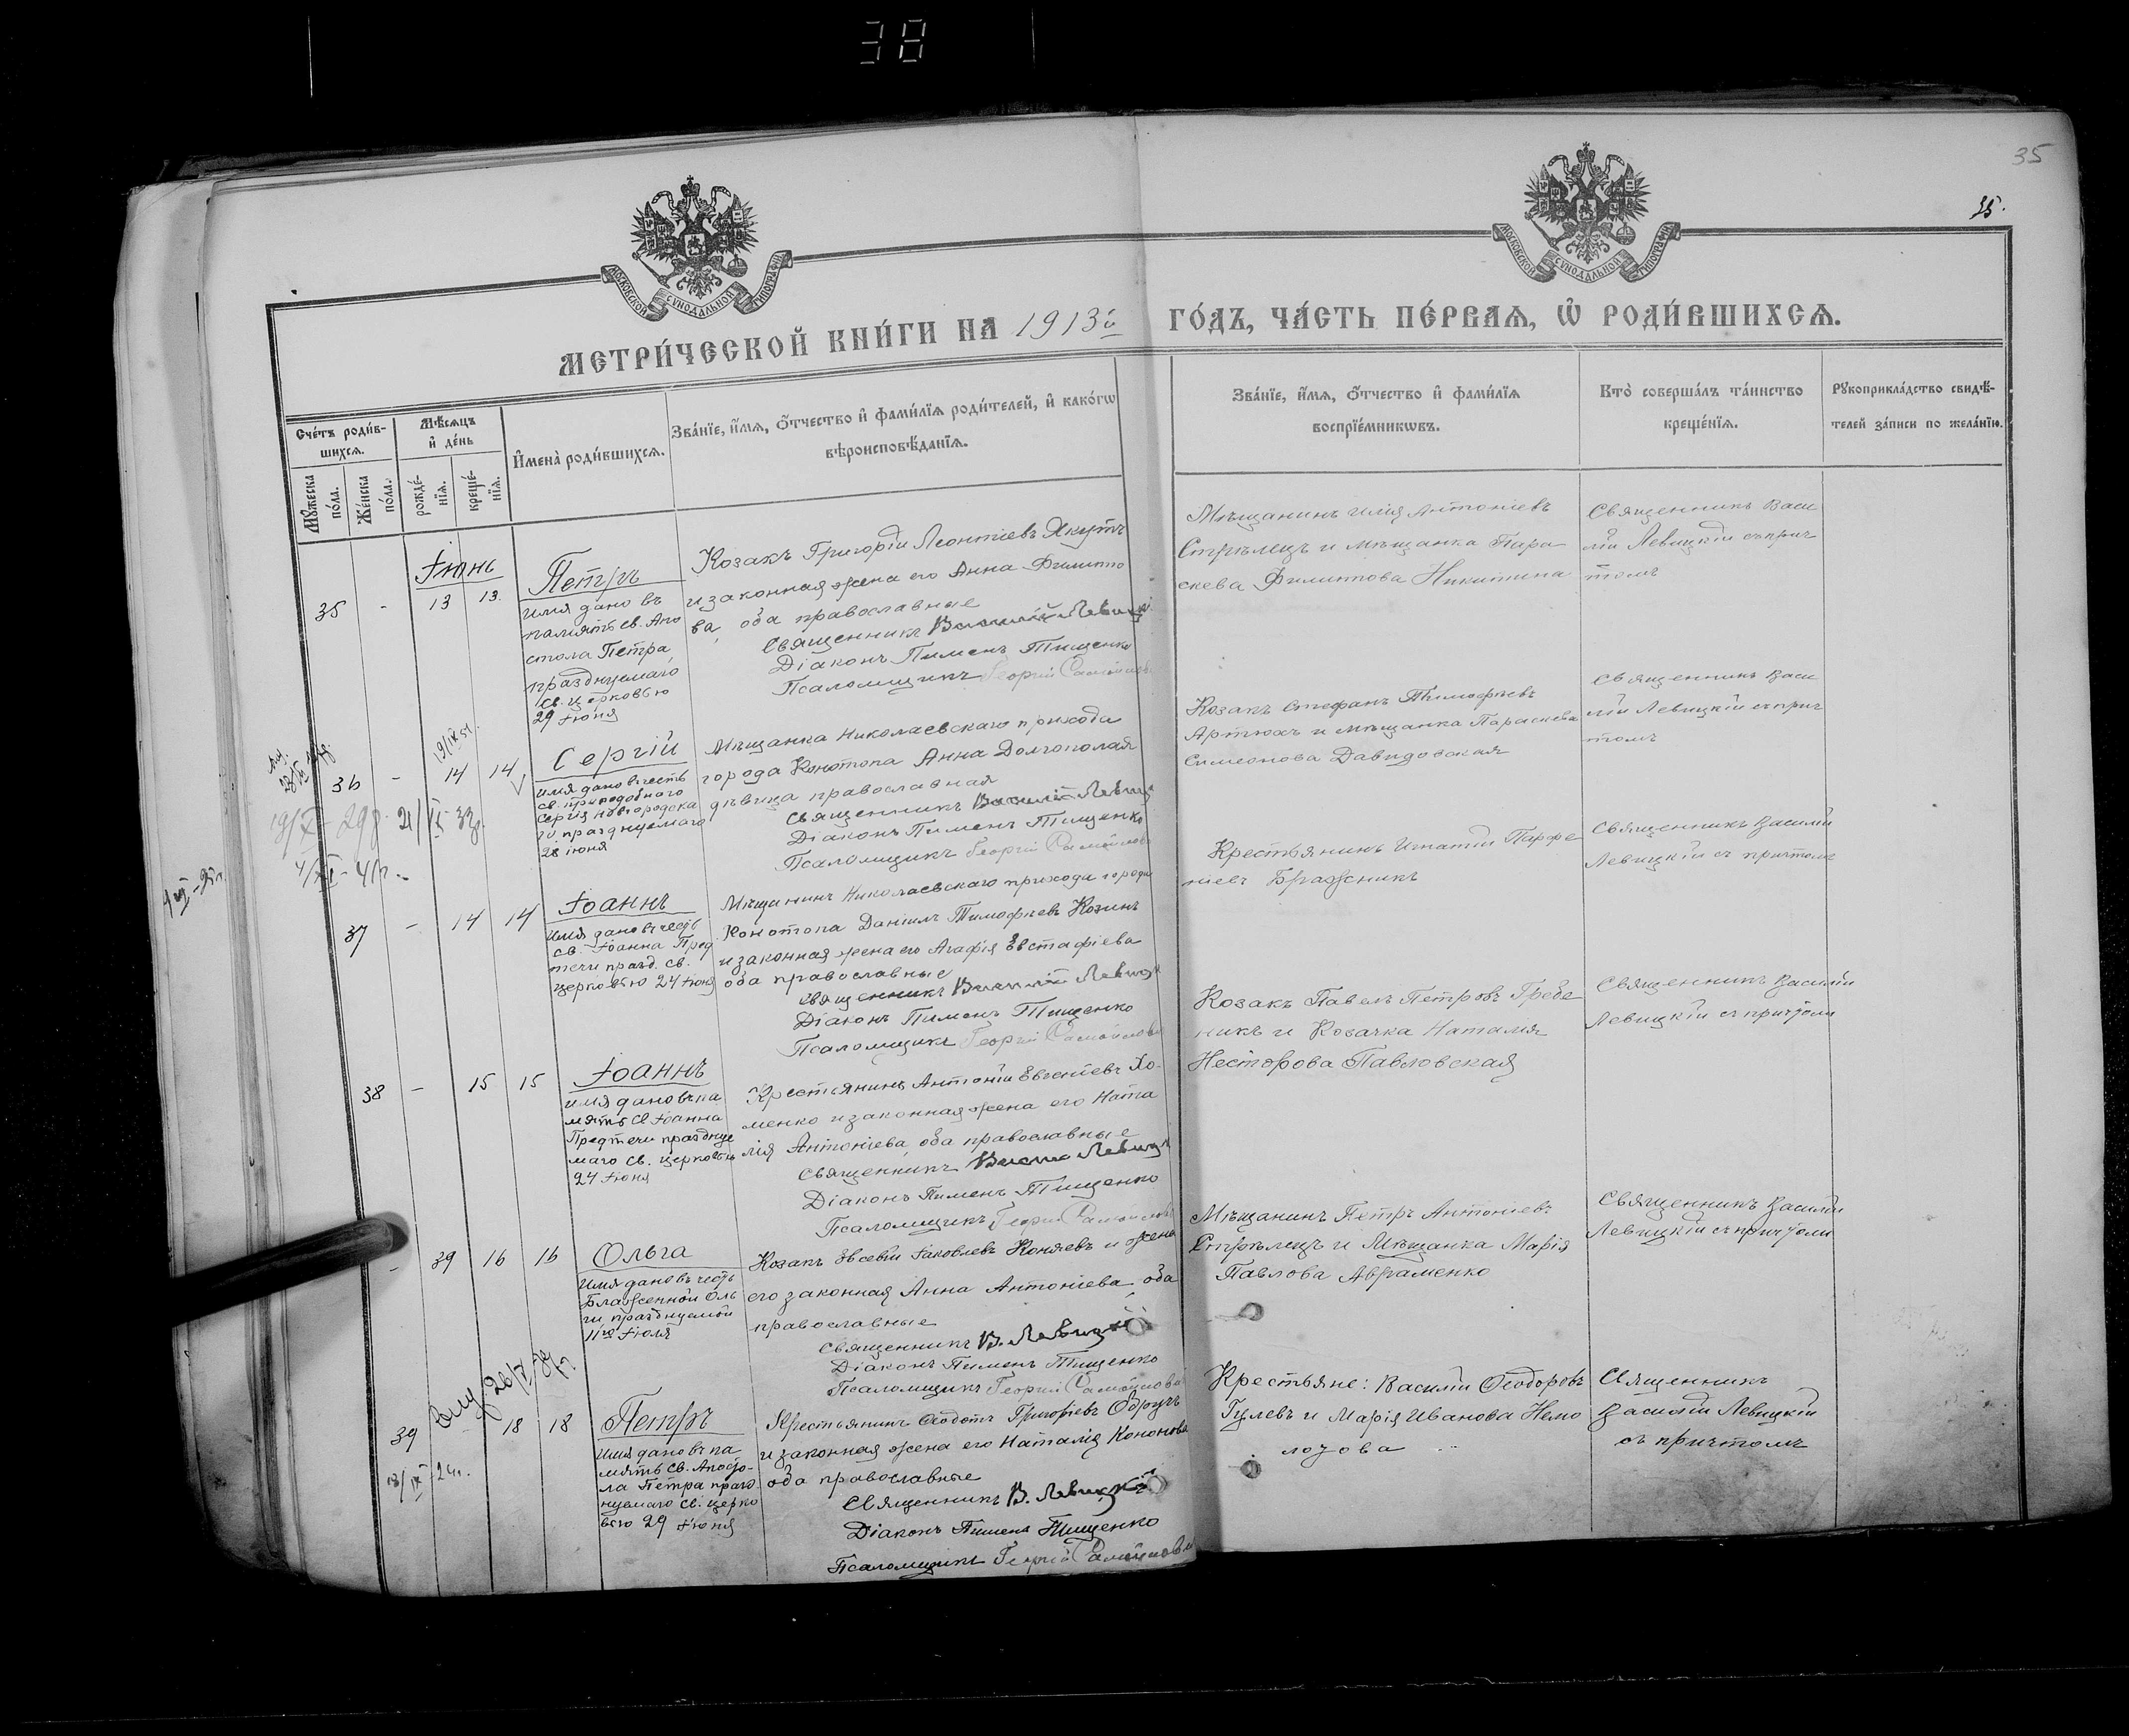 38
35
35.
МОСКОВСКОЙ СѴНОДАЛЬНОЙ ТИПОГРАФІИ
МОСКОВСКОЙ СѴНОДАЛЬНОЙ ТИПОГРАФІИ
МЕТРИ́ЧЕСКОЙ КНИ́ГИ НА 1913й ГО́ДЪ, ЧА́СТЬ ПЕ́РВАѦ, Ѡ РОДИ́ВШИХСѦ.
Счéтъ роди́в-
шихсѧ.
Мѣ́сѧцъ
и́ де́нь
Мꙋ́жеска
по́ла.
Же́нска
по́ла.
рожде́-
нїѧ.
креще́-
нїѧ.
И҆мена̀ роди́вшихсѧ.
Зва́нїе, и҆́мѧ, ѻ҆́тчество и҆ фами́лїѧ роди́телей, и҆ како́гѡ
вѣроисповѣ́данїѧ.
Зва́нїе, и҆́мѧ, ѻ҆́тчество и҆ фами́лїѧ
воспрїе́мникѡвъ.
Кто̀ соверша́лъ та́инство
креще́нїѧ.
Рꙋкоприкла́дство свидѣ́-
телей за́писи по жела́нїю.
Іюнь
35 - 13 13.
Петръ
имя дано въ
память св. Апо
стола Петра,
празднуемаго
св. церковью
29 Іюня
Козакъ Григорій Леонтіевъ Якутъ
и законная жена его Анна Филиппо
ва, оба православные
Священникъ Василій Левицкій
Діаконъ Пименъ Тищенко
Псаломщикъ Георгій Самойлов
Мѣщанинъ Илія Антоніевъ
Стрѣлецъ и мѣщанка Пара
скева Филиппова Никитина
Священникъ Васи
лій Левицкій съ прич
томъ
36 - 14 14
19/IX 51.
Сергій
имя дано въ честь
св. преподобного
Сергія Новгородска
го празднуемаго
28 іюня
Мѣщанка Николаевскаго прихода
города Конотопа Анна Долгополая
дѣвица православная
Священникъ Василій Левицк
Діаконъ Пименъ Тищенко
Псаломщикъ Георгій Самойлов
Козакъ Стефанъ Тимофеевъ
Артюхъ и мѣщанка Параскева
Симеонова Давидовская
Священникъ Васи
лій Левицкій съ прич
томъ
37 - 14 14
Іоаннъ
имя дано въ честь
св. Іоанна Пред
течи празд. св.
церковью 24 Іюня
Мѣщанинъ Николаевскаго прихода города
Конотопа Даніилъ Тимофеевъ Козинъ
и законная жена его Агафія Евстафіева
оба православные
Священникъ Василій Левицк
Діаконъ Пименъ Тищенко
Псаломщикъ Георгій Самойлов
Крестьянинъ Игнатій Парфе
ніевъ Бражникъ
Священникъ Василій
Левицкій съ причтомъ
38 - 15 15
Іоаннъ
имя дано въ па
мять св Іоанна
Предтечи праздну
емаго св. церковью
24 Іюня
Крестьянинъ Антоній Евгеніевъ Хо-
менко и законная жена его Ната
лія Антоніева, оба православные
Священникъ Василій Левицк
Діаконъ Пименъ Тищенко
Псаломщикъ Георгій Самойлов
Козакъ Павелъ Петровъ Гребе
никъ и Козачка Наталія
Несторова Павловская
Священникъ Василій
Левицкій съ причтомъ
- 39 16 16
Ольга
Имя дано въ честь
Блаженной Оль
ги, празднуемой
11го Іюля
Козакъ Евсевій Іаковлевъ Коняевъ и жена
его законная Анна Антоніева, оба
православные
Священникъ В. Левицкій
Діаконъ Пименъ Тищенко
Псаломщикъ Георгій Самойлов
Мѣщанинъ Петръ Антоніевъ
Стрѣлецъ и Мѣщанка Марія
Павлова Авраменко
Священникъ Василій
Левицкій съ причтомъ
39 18 18
Петръ
Имя дано въ па
мять св. Апосто-
ла Петра празд
нуемаго св. церко
вью 29 Іюня
Крестьянинъ Ѳеодотъ Григоріевъ Обручъ
и законная жена его Наталія Кононова
оба православные
Священникъ В. Левицкій
Діаконъ Пименъ Тищенко
Псаломщикъ Георгій Самойлов
Крестьяне: Василій Ѳеодоровъ
Гулевъ и Марія Иванова Немо
лотова
Священникъ
Василій Левицкій
съ причтомъ